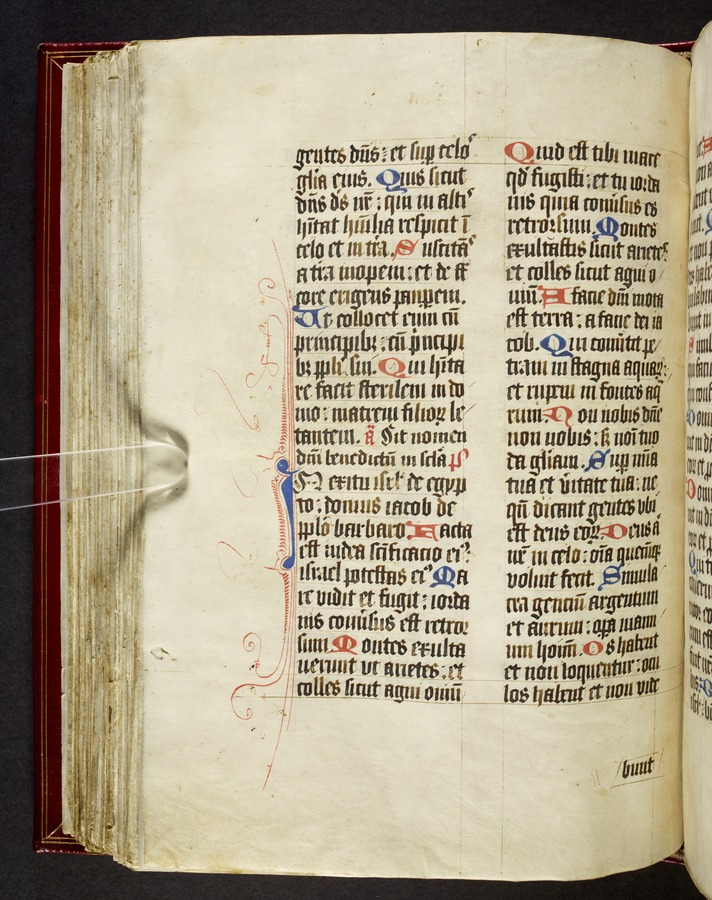 gentes dn̄s : et sup̲ celoˢ
gl̄ia eius. Quis sicut
dn̄s ds̄ nr̄ : qui in altiˢ
hītat et hūīlia respicit ī
celo et in tr̄a. Suscitāˢ
a tr̄a inopem : et de st̄
core erigens pauperem.
Ut collocet eum cū
principibꝫ : cū pͥncipi
bꝫ pp̄li sui. Qui hīta
re facit sterilem in do
mo : matrem filioꝝ le
tantem. a᷍ Sit nomen
dn̄i benedictū in sc̄la p̄s
In exitu isrl̄ de egyp
to : domus iacob de
pp̄lo barbaro. Facta
est iudea sc̄ificacio eiꝰ :
israel potestas eiꝰ. Ma
re vidit et fugit : iorda
nis conuersus est retror
sum. Montes exulta
uerunt ut arietes : et
colles sicut agni ouiū
Quid est tibi mare
qd̄ fugisti : et tu iorda
nis quia conuersus es
retrorsum. Montes
exultastis sicut arieteˢ
et colles sicut agni o
uiū. A facie dn̄i mota
est terra : a facie dei ia
cob. Qui conuertit pe
tram in stagna aquaꝝ :
et rupem in fontes aq̄
rum. Non nobis dn̄e
non nobis : sꝫ noī tuo
da gl̄iam. Sup̲ mīa
tua et ūitate tua : ne
qn̄ dicant gentes vbi
est deus eoꝝ. Deus a
ut̄ in celo : oīa quecūqꝫ
voluit fecit. Simula
cra gentiū argentum
et aurum : opa manu
um hoīm. Os habent
et non loquentur : ocu
los habent et non vide
bunt